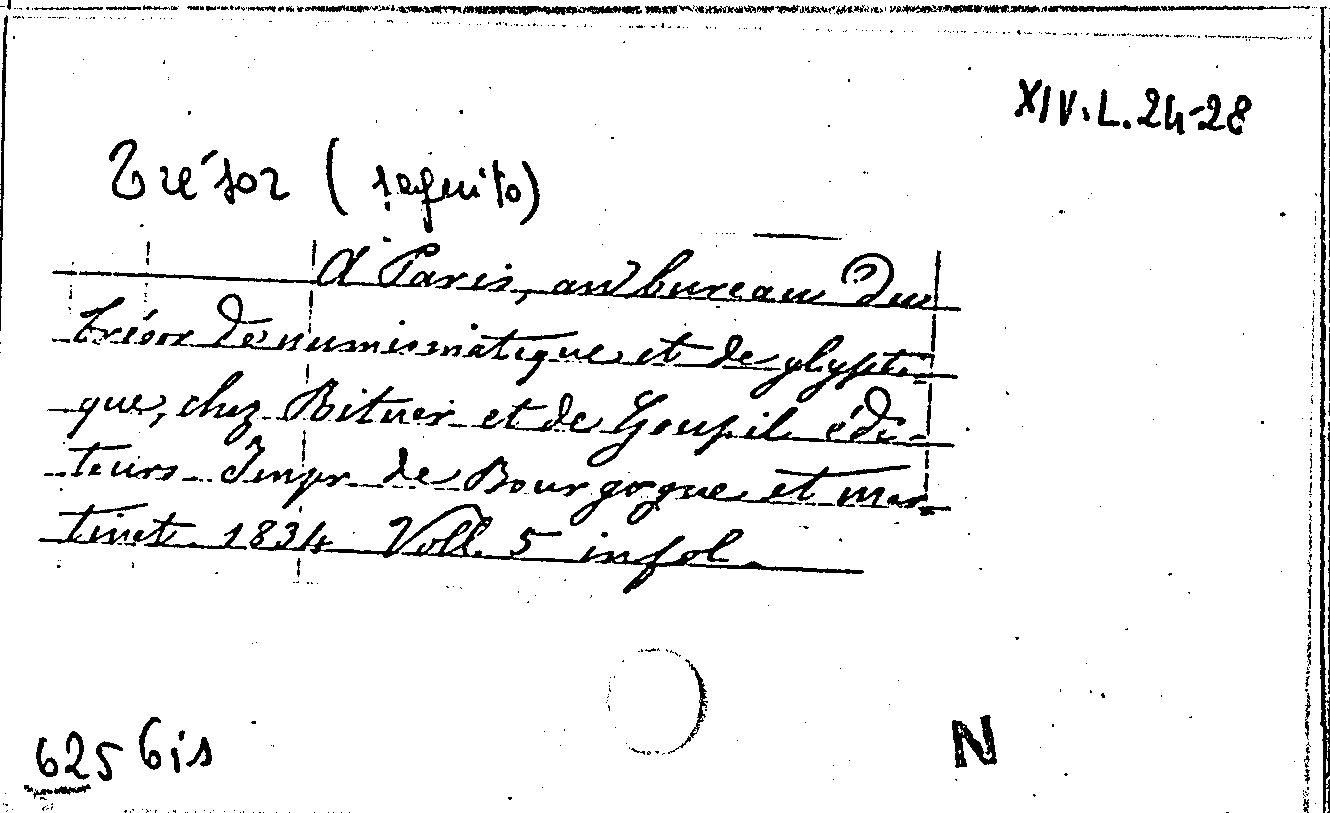 XIV.L.24-28
Trésor (seguito)
A Paris, au bureau du
trésor de numismatique et de glypti-
que, chez Rituer et de Goupil édi-
teurs. Impr. de Bourgogne et mar-
tinet. 1834 Voll. 5 infol.
625 bis
N